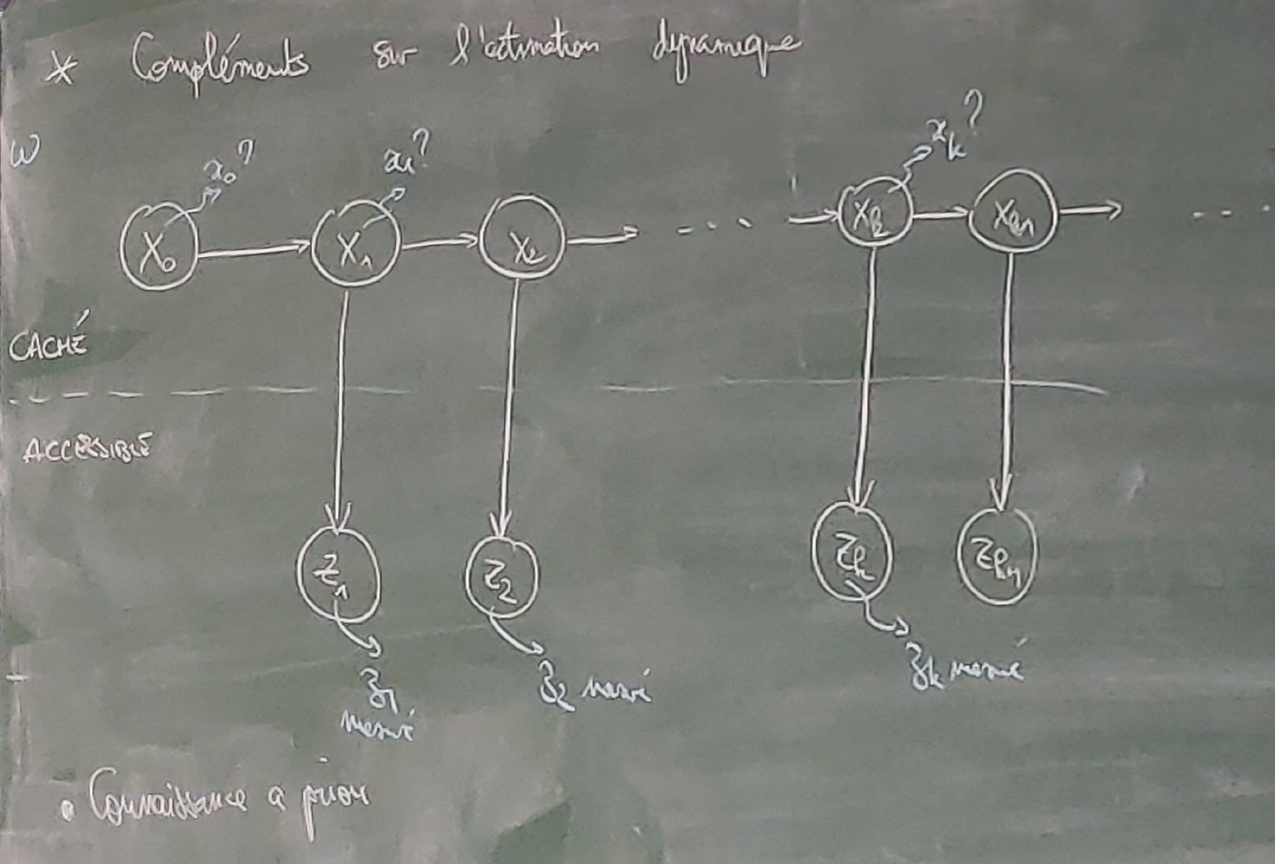 * Compléments sur l'estimation dynamique
ω
x₀? x₁? x_k?
X₀ X₁ X₂ ... X_k X_k+1 ...
CACHÉ
ACCESSIBLE
Z₁ Z₂ Z_k Z_k+1
z₁ mesuré z₂ mesuré z_k mesuré
• Connaissance a priori